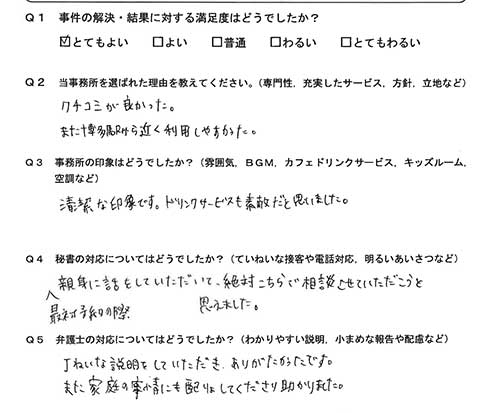 Q1 事件の解決・結果に対する満足度はどうでしたか？
☑とてもよい □よい □普通 □わるい □とてもわるい
Q2 当事務所を選ばれた理由を教えてください。（専門性，充実したサービス，方針，立地など）
クチコミが良かった。
また博多駅から近く利用しやすかった。
Q3 事務所の印象はどうでしたか？（雰囲気，ＢＧＭ，カフェドリンクサービス，キッズルーム，
空調など）
清潔な印象です。ドリンクサービスも素敵だと思いました。
Q4 秘書の対応についてはどうでしたか？（ていねいな接客や電話対応，明るいあいさつなど）
親身に話をしていただいて、絶対こちらで相談させていただこうと
最初予約の際 思えました。
Q5 弁護士の対応についてはどうでしたか？（わかりやすい説明，小まめな報告や配慮など）
丁ねいな説明をしていただき、ありがたかったです。
また家庭の事情にも配りょしてくださり助かりました。